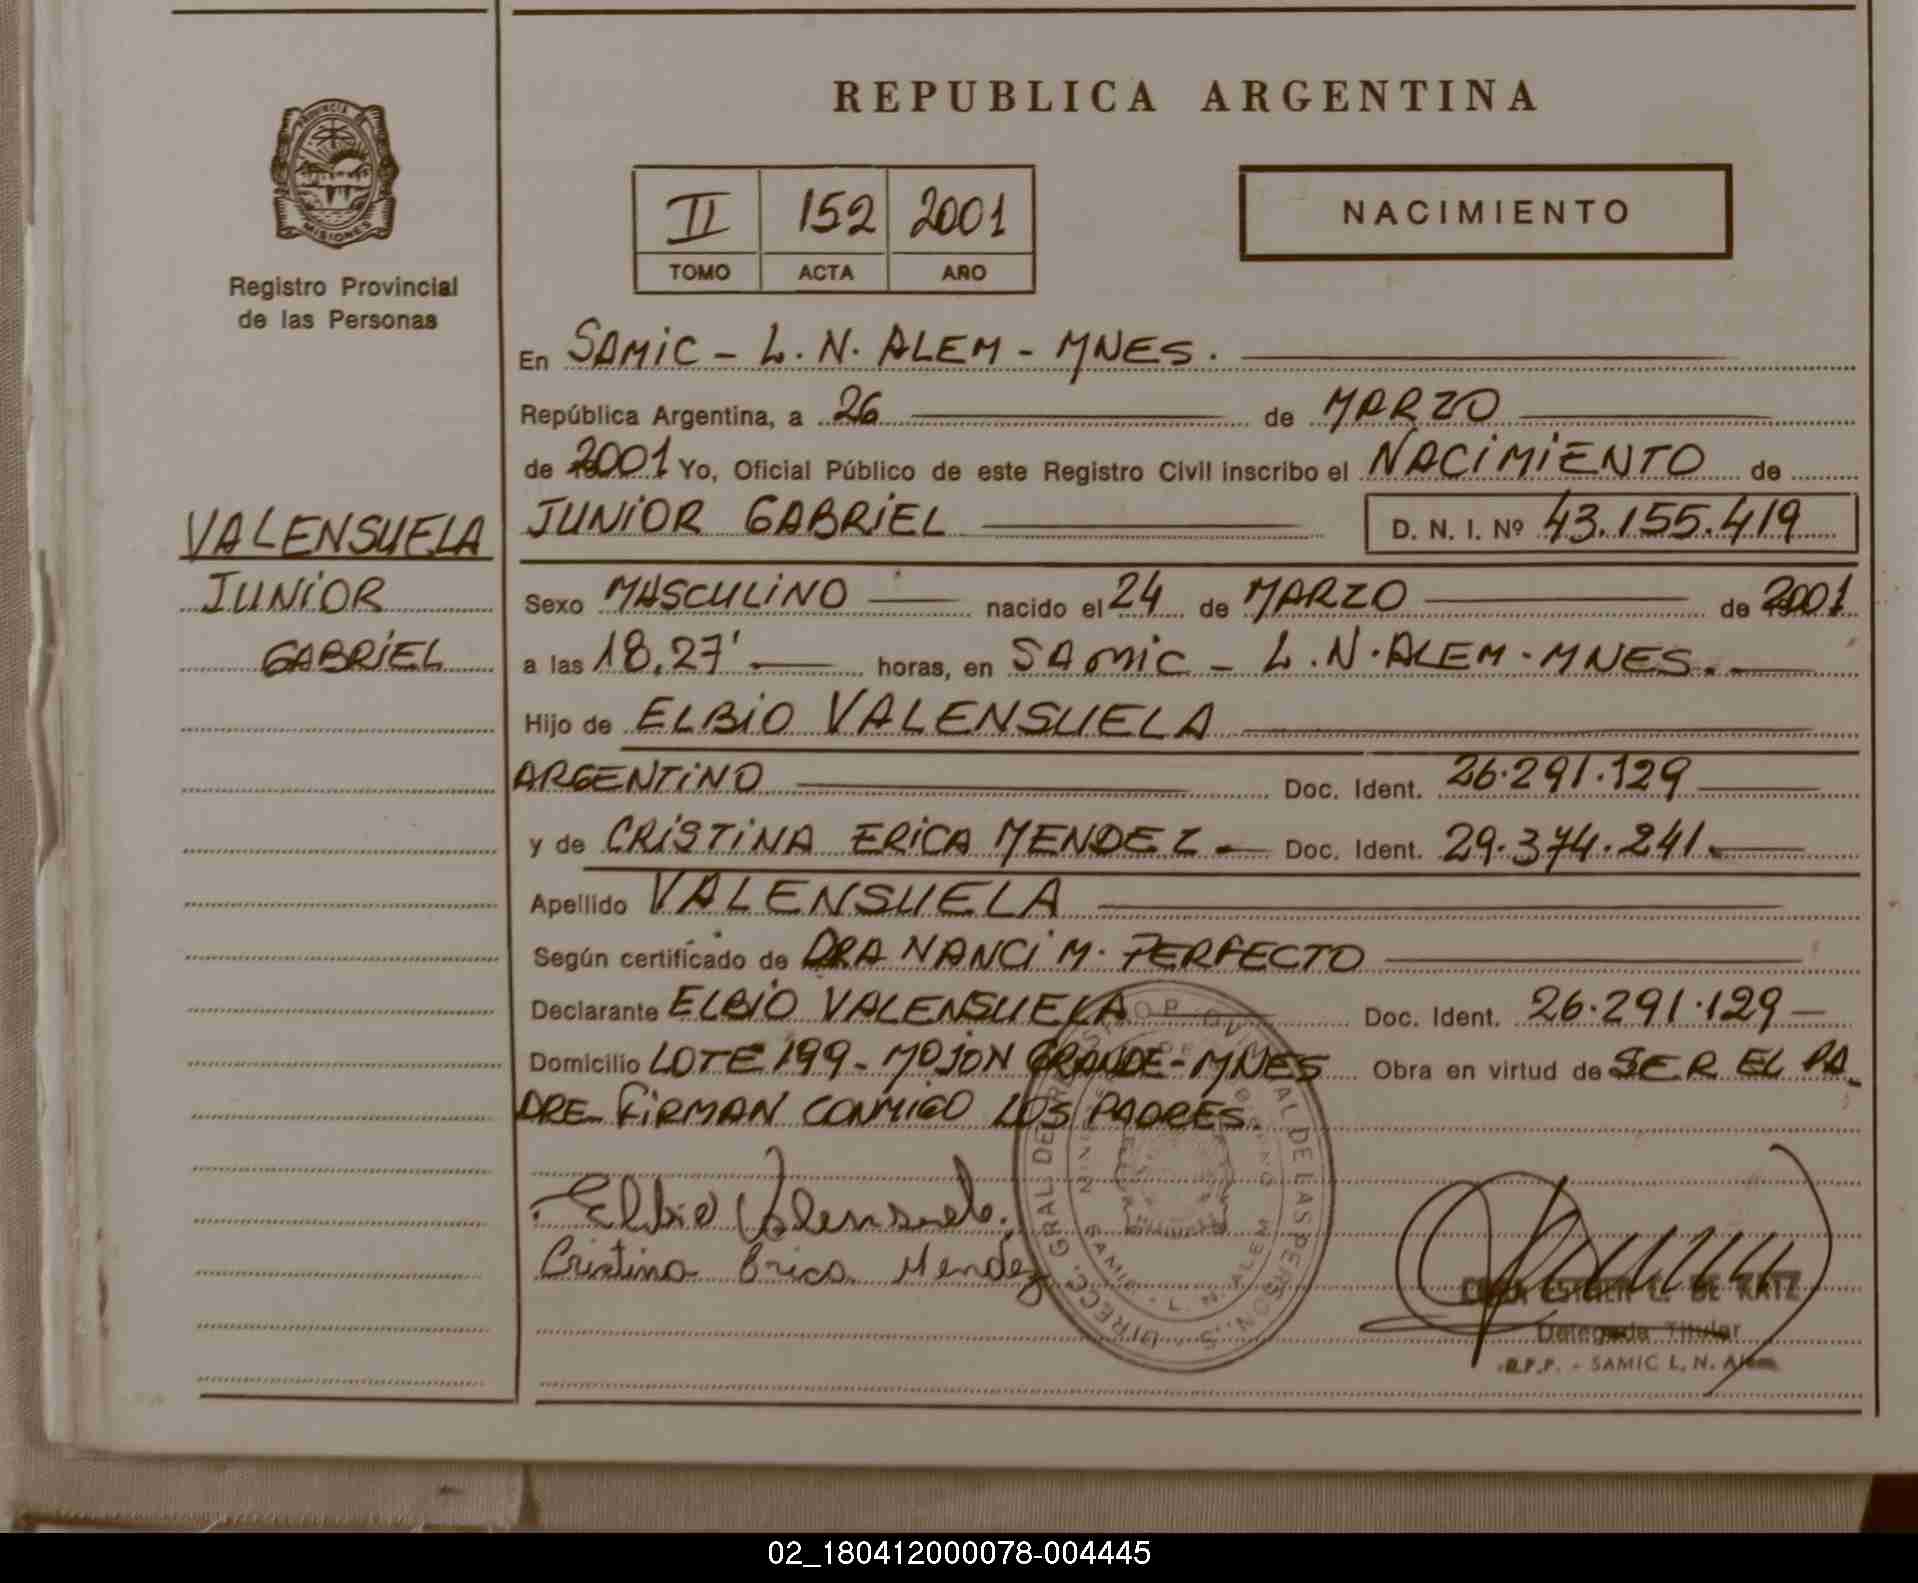 REPUBLICA ARGENTINA
PROVINCIA DE
MISIONES
Registro Provincial
de las Personas
II 152 2001
TOMO ACTA AÑO
NACIMIENTO
En SAMIC - L. N. ALEM - MNES.
República Argentina, a 26 de MARZO
de 2001 Yo, Oficial Público de este Registro Civil inscribo el NACIMIENTO de
JUNIOR GABRIEL D. N. I. Nº 43.155.419
VALENSUELA
JUNIOR
GABRIEL
Sexo MASCULINO nacido el 24 de MARZO de 2001
a las 18.27' horas, en SAMIC - L. N. ALEM - MNES.
Hijo de ELBIO VALENSUELA
ARGENTINO Doc. Ident. 26.291.129
y de CRISTINA ERICA MENDEZ - Doc. Ident. 29.374.241.
Apellido VALENSUELA
Según certificado de DRA NANCI M. PERFECTO
Declarante ELBIO VALENSUELA Doc. Ident. 26.291.129
Domicilio LOTE 199 - MOJON GRANDE - MNES Obra en virtud de SER EL PA_
DRE- FIRMAN CONMIGO LOS PADRES.
Elbio Valensuela.
Cristina Erica Mendez
SAMIC - L. N. ALEM
ESTHER C. DE KATZ
Delegada Titular
R.P.P. - SAMIC L. N. Alem
02_180412000078-004445